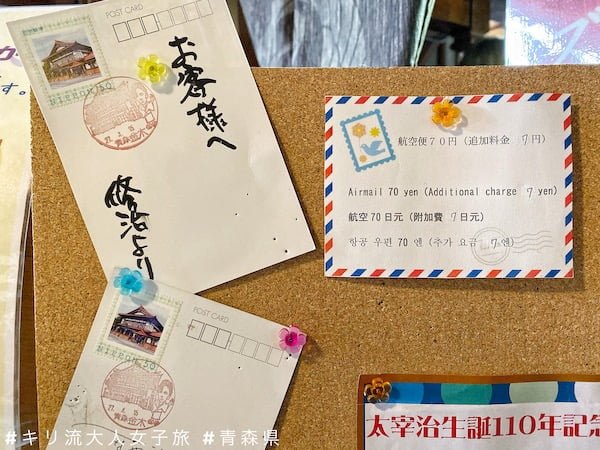 POST CARD
NIPPON 50
お客様へ
修治より
航空便70円(追加料金 7円)
Airmail 70 yen (Additional charge 7 yen)
航空70日元(附加費 7日元)
항공 우편 70 엔 (추가 요금 7엔)
POST CARD
NIPPON 50
太宰治生誕110年記念
#キリ流大人女子旅 #青森県